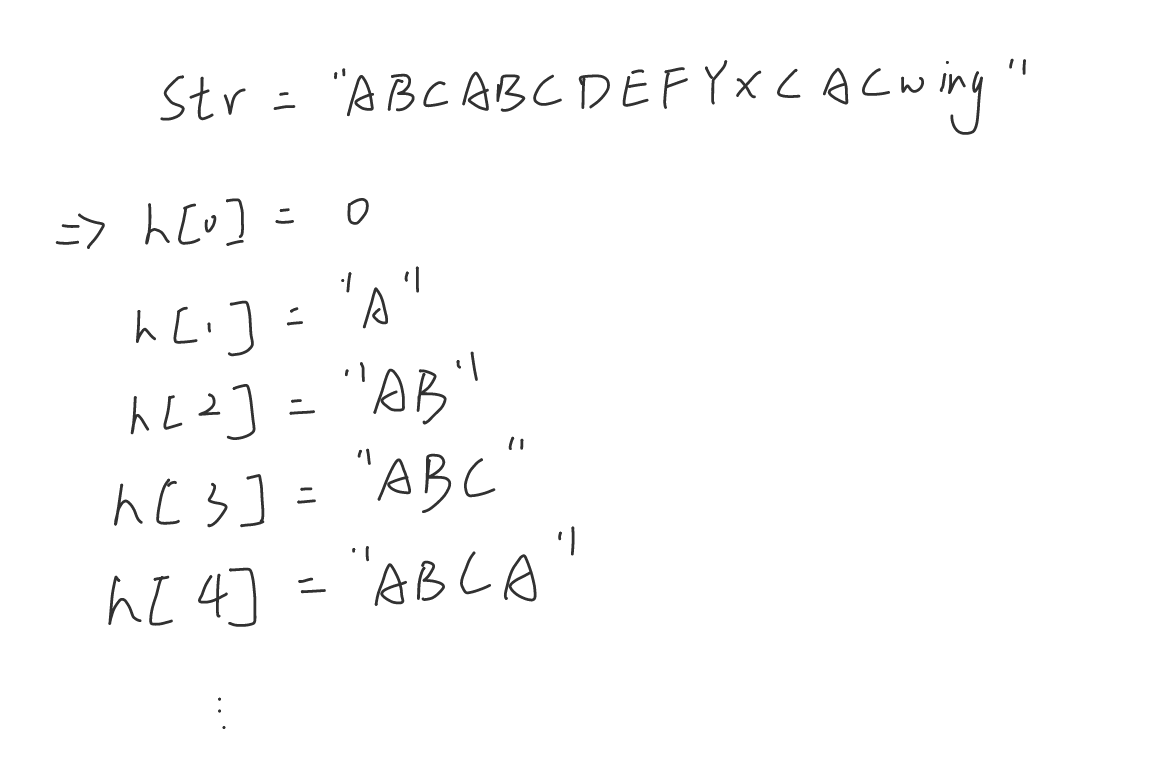 Str = "ABCABCDEFYXCACwing"
=> h[0] = 0
h[1] = "A"
h[2] = "AB"
h[3] = "ABC"
h[4] = "ABCA"
⋮